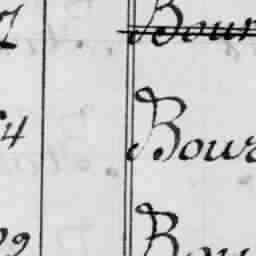 7 Bour
4 Bour
29 Bou